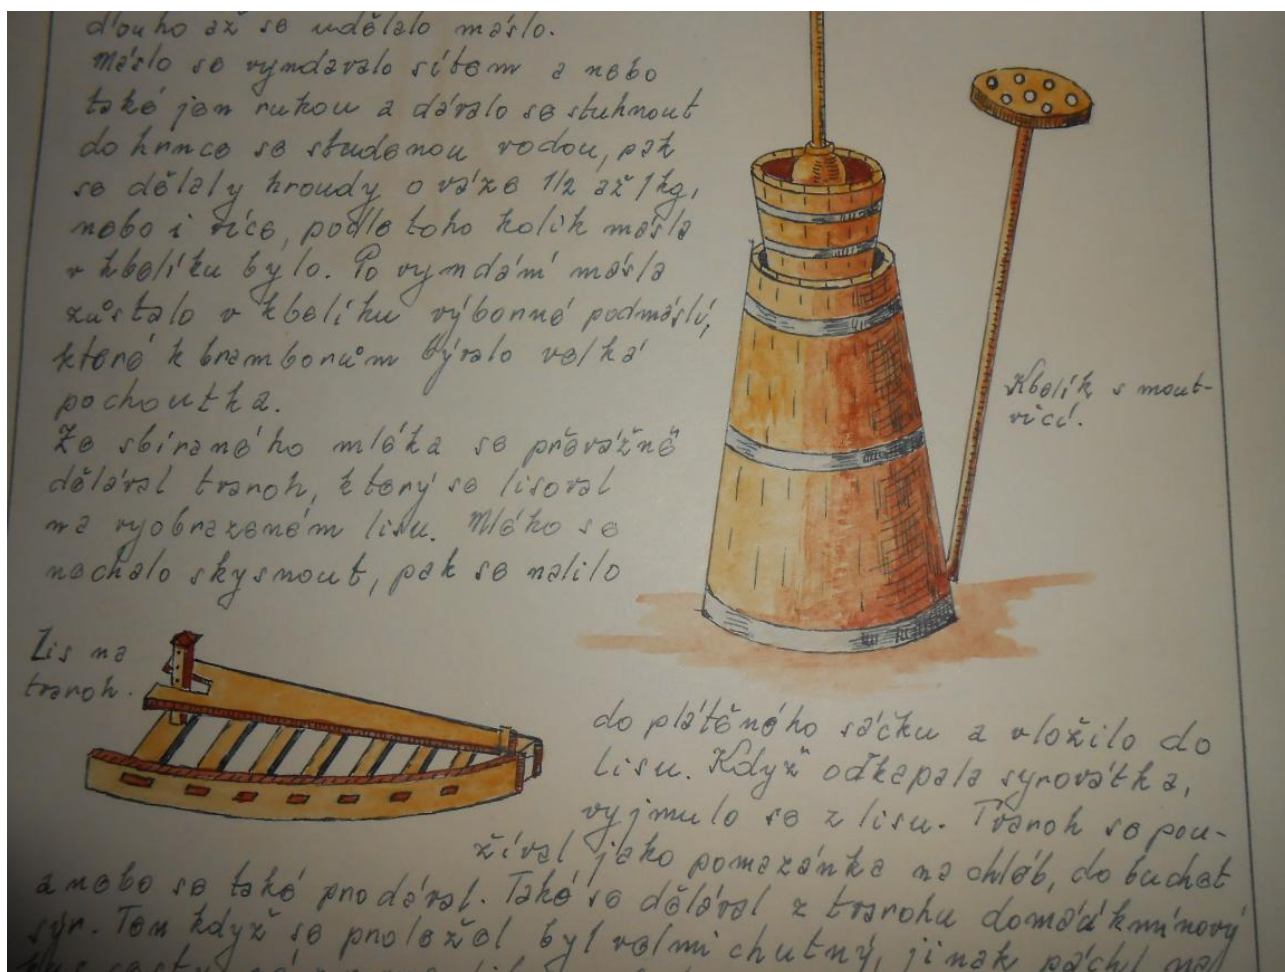 dlouho až se udělalo máslo.
Máslo se vyndavalo sítem a nebo
také jen rukou a dávalo se stuhnout
do hrnce se studenou vodou, pak
se dělaly hroudy o váze 1/2 až 1 kg,
nebo i více, podle toho kolik másla
v kbelíku bylo. Po vyndání másla
zůstalo v kbelíku výborné podmáslí,
které k bramborům bývalo velká
pochoutka.
Ze sbíraného mléka se převážně
dělával tvaroh, který se lisoval
na vyobrazeném lisu. Mléko se
nechalo skysnout, pak se nalilo
Kbelík s mout-
vičí.
Lis na
tvaroh.
do plátěného sáčku a vložilo do
lisu. Když odkapala syrovátka,
vyjmulo se z lisu. Tvaroh se pou-
žíval jako pomazánka na chléb, do buchet
a nebo se také prodával. Také se dělával z tvarohu domácí kmínový
sýr. Ten když se proležel byl velmi chutný, jinak páchl na